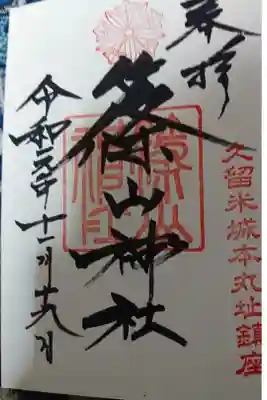 奉拝
久留米城本丸址鎮座
篠山神社
篠山神社
令和元年十一月